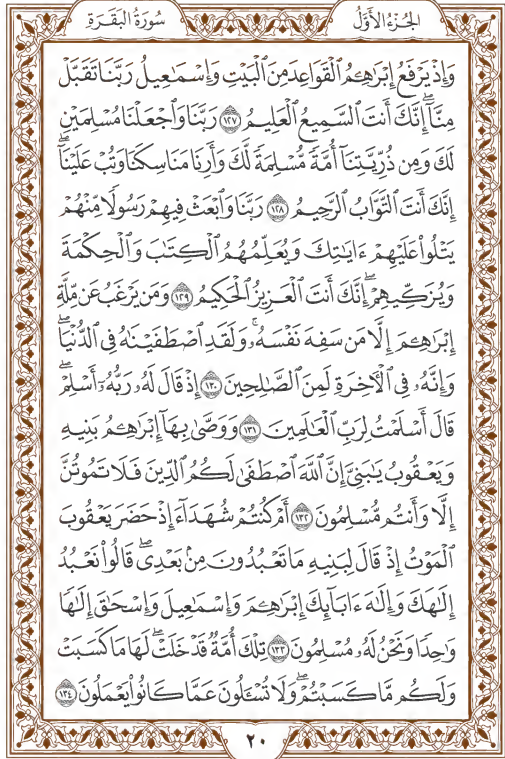 الجُزْءُ الأَوَّلُ
سُورَةُ البَقَرَةِ
وَإِذْ يَرْفَعُ إِبْرَٰهِۦمُ ٱلْقَوَاعِدَ مِنَ ٱلْبَيْتِ وَإِسْمَٰعِيلُ رَبَّنَا تَقَبَّلْ
مِنَّآ ۖ إِنَّكَ أَنتَ ٱلسَّمِيعُ ٱلْعَلِيمُ ١٢٧ رَبَّنَا وَٱجْعَلْنَا مُسْلِمَيْنِ
لَكَ وَمِن ذُرِّيَّتِنَآ أُمَّةً مُّسْلِمَةً لَّكَ وَأَرِنَا مَنَاسِكَنَا وَتُبْ عَلَيْنَآ ۖ
إِنَّكَ أَنتَ ٱلتَّوَّابُ ٱلرَّحِيمُ ١٢٨ رَبَّنَا وَٱبْعَثْ فِيهِمْ رَسُولًا مِّنْهُمْ
يَتْلُوا۟ عَلَيْهِمْ ءَايَٰتِكَ وَيُعَلِّمُهُمُ ٱلْكِتَٰبَ وَٱلْحِكْمَةَ
وَيُزَكِّيهِمْ ۖ إِنَّكَ أَنتَ ٱلْعَزِيزُ ٱلْحَكِيمُ ١٢٩ وَمَن يَرْغَبُ عَن مِّلَّةِ
إِبْرَٰهِۦمَ إِلَّا مَن سَفِهَ نَفْسَهُۥ ۚ وَلَقَدِ ٱصْطَفَيْنَٰهُ فِى ٱلدُّنْيَا ۖ
وَإِنَّهُۥ فِى ٱلْءَاخِرَةِ لَمِنَ ٱلصَّٰلِحِينَ ١٣٠ إِذْ قَالَ لَهُۥ رَبُّهُۥٓ أَسْلِمْ ۖ
قَالَ أَسْلَمْتُ لِرَبِّ ٱلْعَٰلَمِينَ ١٣١ وَوَصَّىٰ بِهَآ إِبْرَٰهِۦمُ بَنِيهِ
وَيَعْقُوبُ يَٰبَنِىَّ إِنَّ ٱللَّهَ ٱصْطَفَىٰ لَكُمُ ٱلدِّينَ فَلَا تَمُوتُنَّ
إِلَّا وَأَنتُم مُّسْلِمُونَ ١٣٢ أَمْ كُنتُمْ شُهَدَآءَ إِذْ حَضَرَ يَعْقُوبَ
ٱلْمَوْتُ إِذْ قَالَ لِبَنِيهِ مَا تَعْبُدُونَ مِنۢ بَعْدِى ۖ قَالُوا۟ نَعْبُدُ
إِلَٰهَكَ وَإِلَٰهَ ءَابَآئِكَ إِبْرَٰهِۦمَ وَإِسْمَٰعِيلَ وَإِسْحَٰقَ إِلَٰهًا
وَٰحِدًا وَنَحْنُ لَهُۥ مُسْلِمُونَ ١٣٣ تِلْكَ أُمَّةٌ قَدْ خَلَتْ ۖ لَهَا مَا كَسَبَتْ
وَلَكُم مَّا كَسَبْتُمْ ۖ وَلَا تُسْـَٔلُونَ عَمَّا كَانُوا۟ يَعْمَلُونَ ١٣٤
٢٠